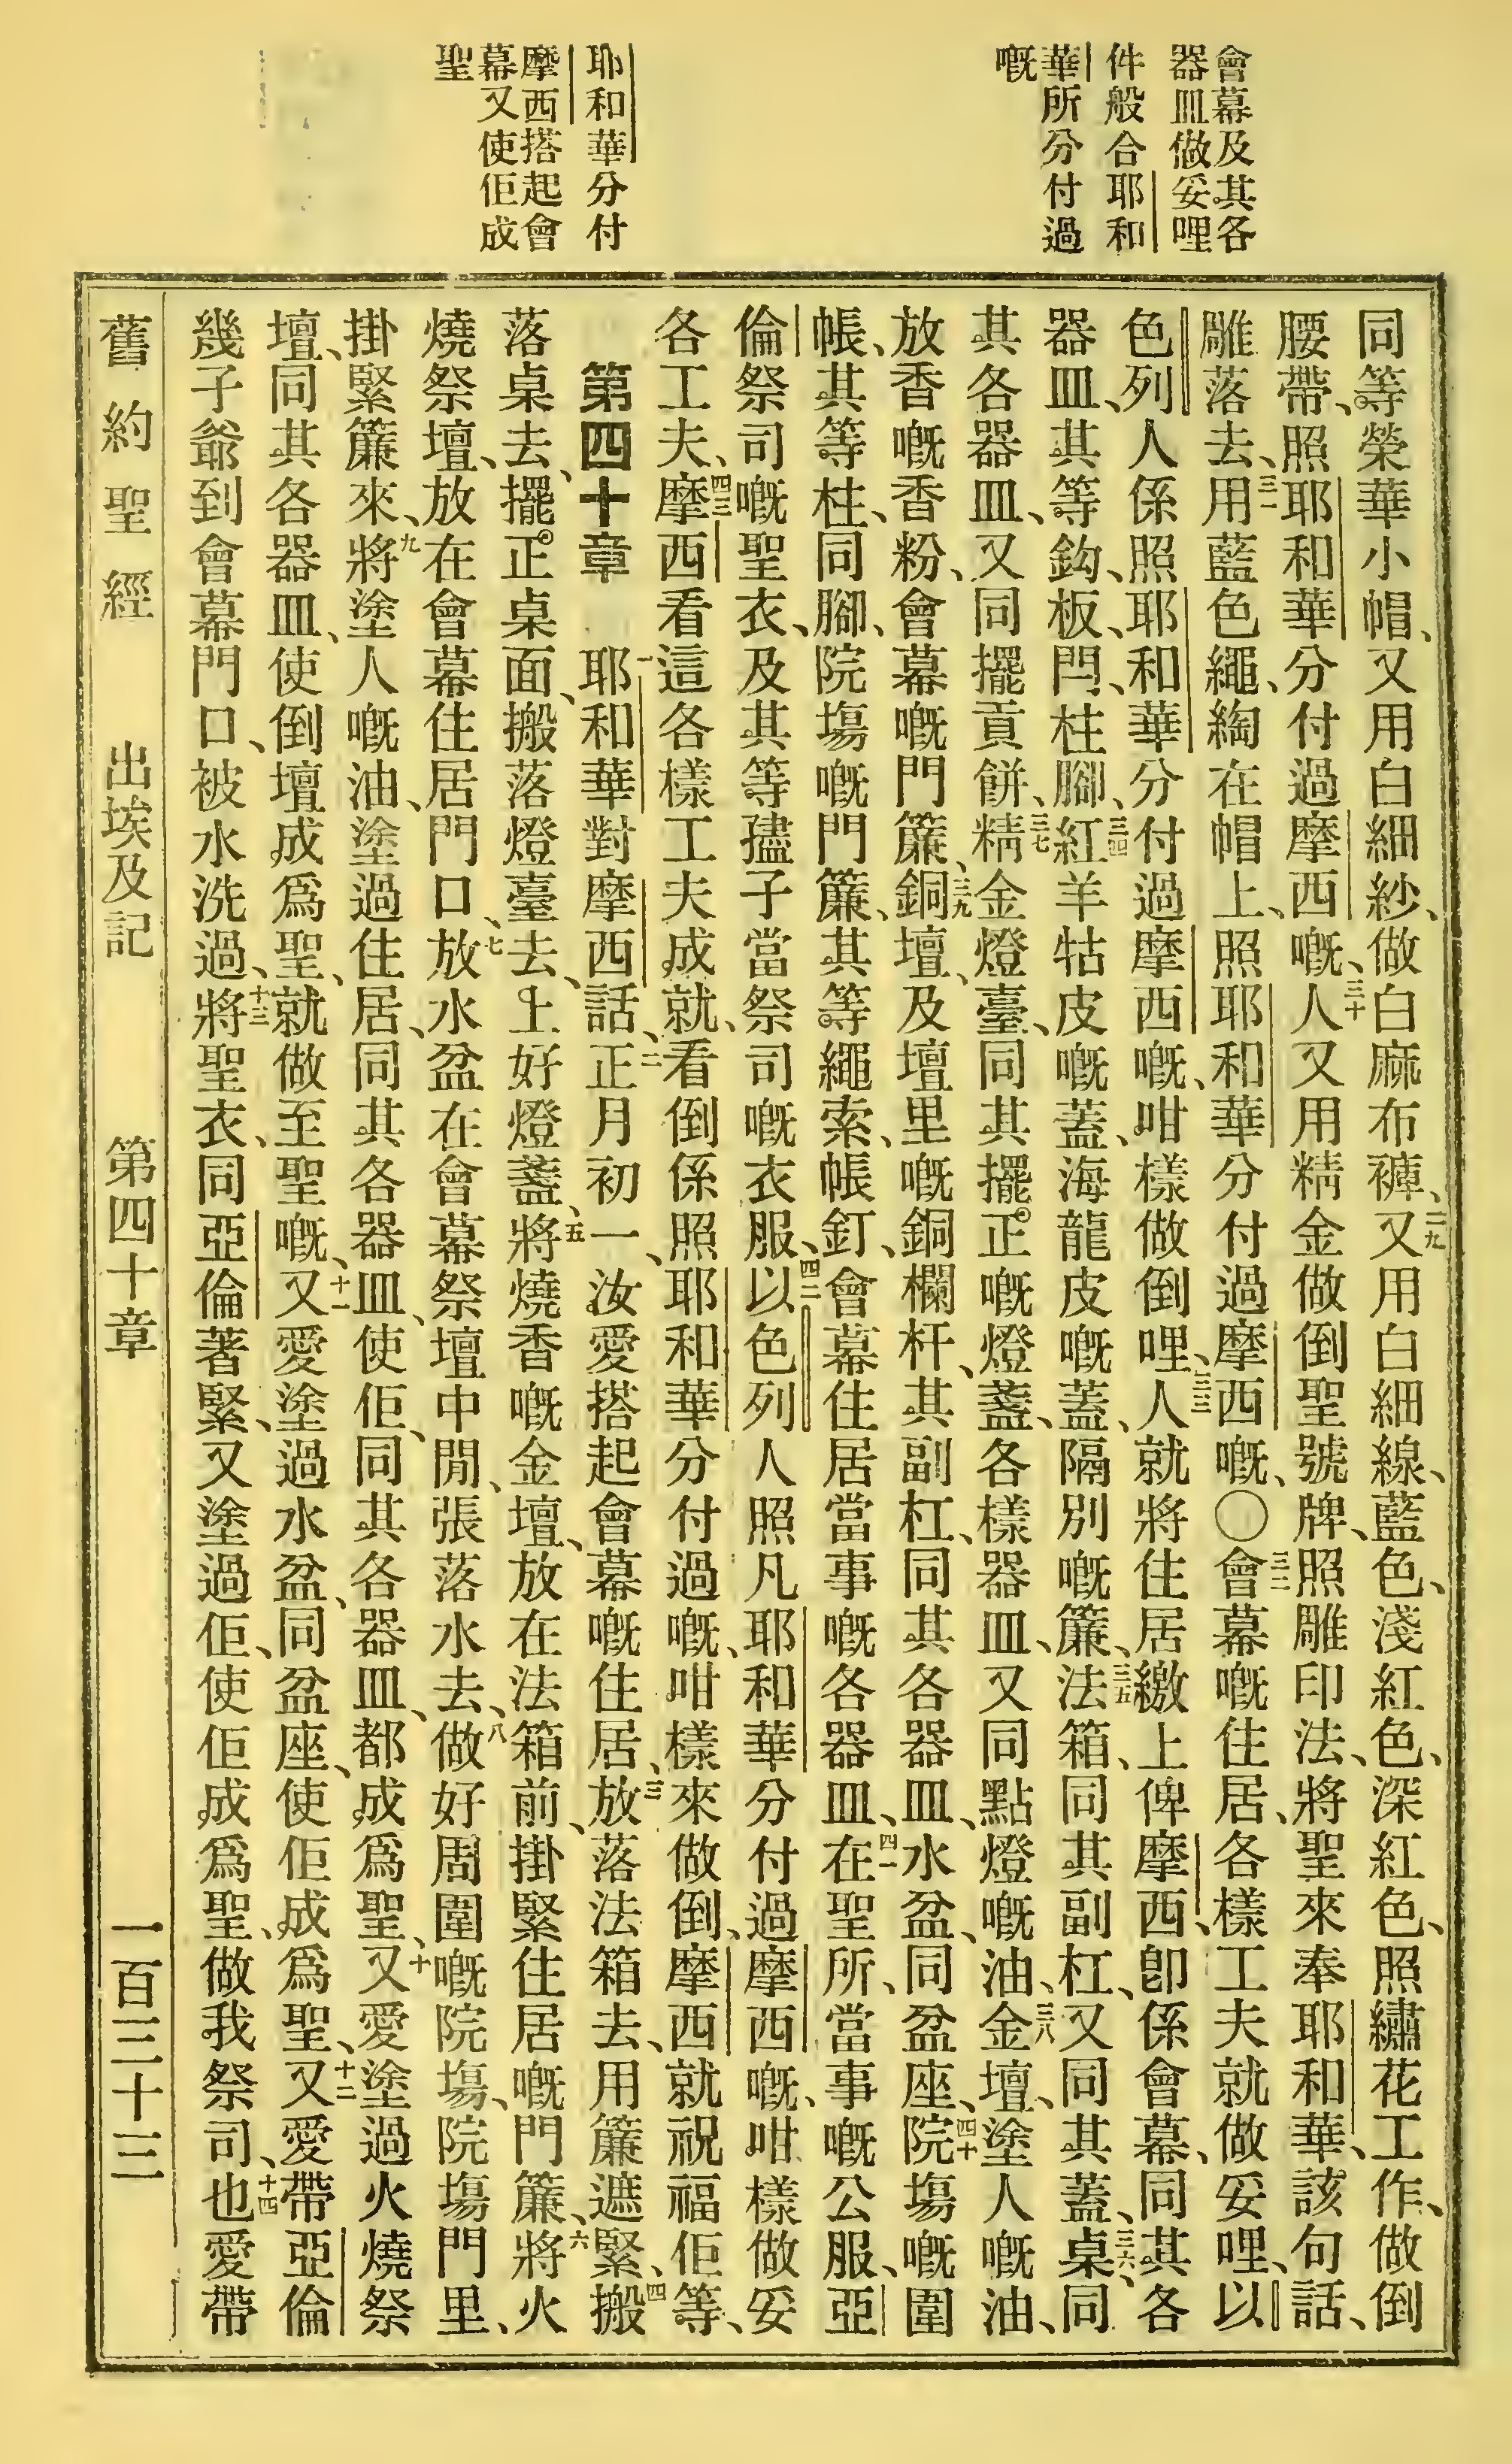 會幕及其各
器皿做妥哩
件般合耶和
華所分付過
嘅
耶和華分付
摩西搭起會
幕又使佢成
聖
同等榮華小帽、又用白細紗、做白麻布褲、二九又用白細線、藍色、淺紅色、深紅色、照繡花工作、做倒
腰帶、照耶和華分付過摩西嘅、三十人又用精金做倒聖號牌、照雕印法、將聖來奉耶和華、該句話、
雕落去、三一用藍色繩、綯在帽上、照耶和華分付過摩西嘅、〇三二會幕嘅住居、各樣工夫就做妥哩、以
色列人係照耶和華分付過摩西嘅、咁樣做倒哩、三三人就將住居繳上俾摩西、卽係會幕、同其各
器皿、其等鈎、板、閂、柱腳、三四紅羊牯皮嘅蓋、海龍皮嘅蓋、隔別嘅簾、三五法箱、同其副杠、又同其蓋、三六桌、同
其各器皿、又同擺貢餅、三七精金燈臺、同其擺正嘅燈盞、各樣器皿、又同點燈嘅油、三八金壇、塗人嘅油、
放香嘅香粉、會幕嘅門簾、三九銅壇、及壇里嘅銅欄杆、其副杠、同其各器皿、水盆、同盆座、四十院場嘅圍
帳、其等柱、同腳、院場嘅門簾、其等繩索、帳釘、會幕住居當事嘅各器皿、四一在聖所、當事嘅公服、亞
倫祭司嘅聖衣、及其等孻子當祭司嘅衣服、四二以色列人照凡耶和華分付過摩西嘅、咁樣做妥
各工夫、四三摩西看這各樣工夫成就、看倒係照耶和華分付過嘅、咁樣來做倒、摩西就祝福佢等、
第四十章 一耶和華對摩西話、二正月初一、汝愛搭起會幕嘅住居、三放落法箱去、用簾遮緊、四搬
落桌去、擺正桌面、搬落燈臺去、上好燈盞、五將燒香嘅金壇、放在法箱前、掛緊住居嘅門簾、六將火
燒祭壇、放在會幕住居門口、七放水盆在會幕祭壇中閒、張落水去、八做好周圍嘅院場、院場門里、
掛緊簾來、九將塗人嘅油、塗過住居、同其各器皿、使佢、同其各器皿、都成爲聖、十又愛塗過火燒祭
壇、同其各器皿、使倒壇成爲聖、就做至聖嘅、十一又愛塗過水盆、同盆座、使佢成爲聖、十二又愛帶亞倫
幾子爺到會幕門口、被水洗過、十三將聖衣、同亞倫著緊、又塗過佢、使佢成爲聖、做我祭司、十四也愛帶
舊約聖經 出埃及記 第四十章 一百三十三